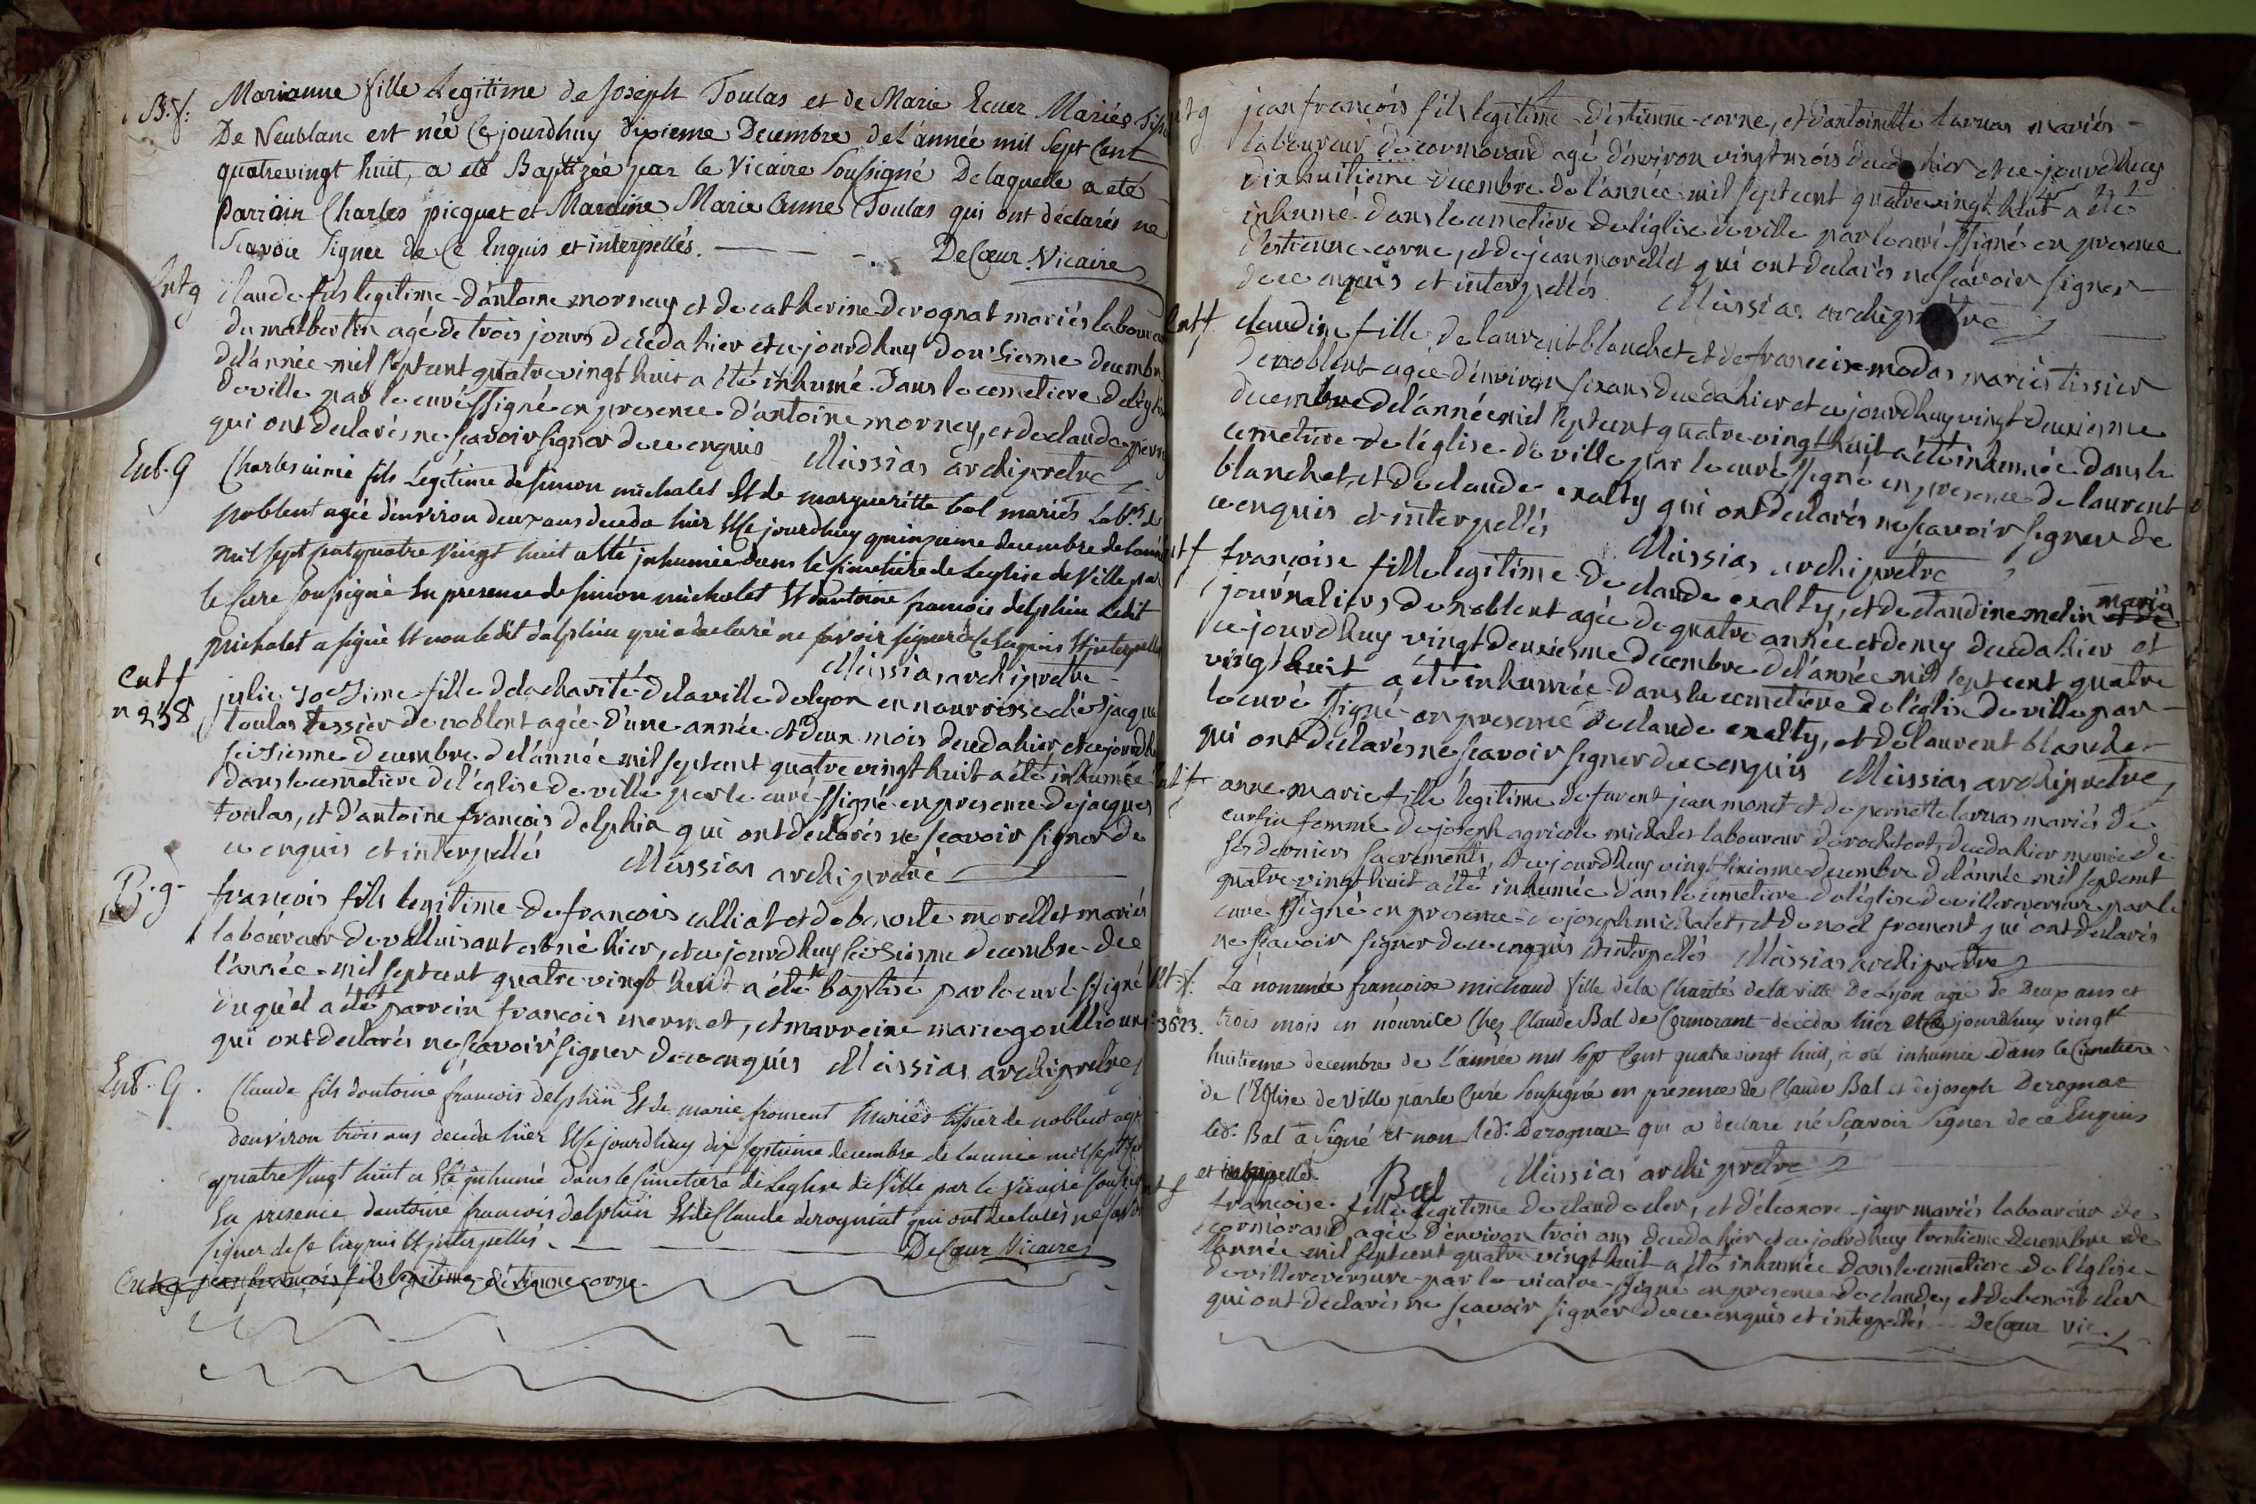 B. f. Marianne fille Legitime de Joseph Toulas et de Marie Ecuer Mariés
De Neublanc est née Ce jourdhuy dixieme Decembre de l'année mil Sept Cent
quatrevingt huit, a eté Baptizée par le Vicaire Soussigné De laquelle a eté
parrain Charles picquet et Maraine Marie Anne Toulas qui ont déclarés ne
Scavoir Signer de Ce Enquis et interpellés. De Cœur Vicaire
Ent g claude fils legitime d'antoine mornay et de catherine derognat mariés
du malbertin agé de trois jours deceda hier et ce jourdhuy douzieme decembre
de l'année mil sept cent quatre vingt huit a été inhumé dans le cemetiere de l'église
de ville par le curé ssigné en presence d'antoine mornay, et de claude
qui ont declarés ne scavoir signer de ce enquis Messias archipretre
Ent. G Charles aimé fils Legitime de simon michalet Et de margueritte bal mariés
noblent agée d'environ deux ans deceda hier Et Ce jourdhuy quinzieme decembre de
mil sept cent quatre vingt huit a été inhumée dans le cimetiere de Leglise de Ville par
le Cure Soussigné En presence de simon michalet Et d'antoine francois delphin Ledit
michalet a signé Et non ledit delphin qui a declaré ne savoir signer de Ce Enquis Et interpellé
Messias archipretre
Ent f julie fille de la charité de la ville de lyon en nourrisse chés jacque
n 258 toulas tessier de noblent agée d'une année et deux mois deceda hier et ce jourdhuy
seizieme decembre de l'année mil sept cent quatre vingt huit a été inhumée
dans le cemetiere de l'église de ville par le curé ssigné en presence de jacques
toulas, et d'antoine françois delphin qui ont declarés ne scavoir signer de
ce enquis et interpellés Messias archipretre
B. g. françois fils legitime de francois calliat et de benoite morellet mariés
laboureur de est né hier, et ce jourdhuy seizieme decembre de
l'année mil sept cent quatre vingt huit a été baptisé par le curé ssigné
duquel a été parrein francois mermet, et marreine marie
qui ont declarés ne scavoir signer de ce enquis Messias archipretre
Ent. G. Claude fils dantoine francois delphin Et de marie froment mariés tissier de noblent agé
denviron trois ans deceda hier Et Ce jourdhuy dix septieme decembre de lannée mil sept
quatre Vingt huit a Eté inhumé dans le Cimetiere de Leglise de Ville par le Vicaire
En presence dantoine francois delphin Et de Claude derognat qui ont declarés ne
signer de Ce Enquis Et interpellés. De Cœur Vicaire
Ent g jean françois fils legitime d'étienne corne
jean françois fils legitime d'estienne corne, et d'antoinette larnas mariés
laboureur de cormorand agé d'environ vingt trois deceda hier et ce jourdhuy
dix huitieme decembre de l'année mil sept cent quatre vingt huit a été
inhumé dans le cemetiere de l'église de ville par le curé ssigné en presence
d'estienne corne, et de jean morellet qui ont declarés ne scavoir signer
de ce enquis et interpellés Messias archipretre
Ent f claudine fille de laurent blanchet et de francoise modas mariés tissier
de noblent agée d'environ six ans deceda hier et ce jourdhuy vingt deuxiesme
decembre de l'année mil sept cent quatre vingt huit a été inhumée dans le
cemetiere de l'église de ville par le curé ssigné en presence de laurent
blanchet, et de claude exalty qui ont declarés ne scavoir signer de
ce enquis et interpellés Messias archipretre
françoise fille legitime de claude exalty, et de claudine melin mariés
journaliers de noblent agée de quatre année et demy deceda hier et
ce jourdhuy vingt deuxiesme decembre de l'année mil sept cent quatre
vingt huit a été inhumée dans le cemetiere de l'église de ville par
le curé ssigné en presence de claude exalty, et de laurent blanchet
qui ont declarés ne scavoir signer de ce enquis Messias archipretre
anne marie fille legitime de furent jean monet et de pernette larnas mariés de
curtin femme de joseph agricole michalet laboureur de rochefort, deceda hier munie de
ses derniers sacrements, et ce jourdhuy vingt sixiesme decembre de l'année mil sept cent
quatre vingt huit a été inhumée dans le cemetiere de l'église de villereversure par le
curé ssigné en presence de joseph michalet, et de noel froment qui ont declarés
ne scavoir signer de ce enquis et interpellés Messias archipretre
La nommée françoise michaud fille de la Charité de la ville De Lyon agée de Deux ans et
3623. trois mois en nourrice Chez Claude Bal de Cormorant deceda hier et Ce jourdhuy vingt
huitieme decembre de l'année mil sept Cent quatre vingt huit, a eté inhumée dans le Cimetiere
de l'Eglise de Ville par le Curé Soussigné en présence de Claude Bal et de joseph Derognat
led. Bal a signé et non led. Derognat qui a declaré né Scavoir Signer de ce Enquis
et interpellé Bal Messias archipretre
françoise fille legitime de claude cler, et d'éleonore jayr mariés laboureur de
cormorand agée d'environ trois ans deceda hier et ce jourdhuy trentieme decembre de
l'année mil sept cent quatre vingt huit a été inhumée dans le cemetiere de l'église
de villereversure par le vicaire ssigné en presence de claude, et de benoit cler
qui ont declarés ne scavoir signer de ce enquis et interpellés De Cœur vic.